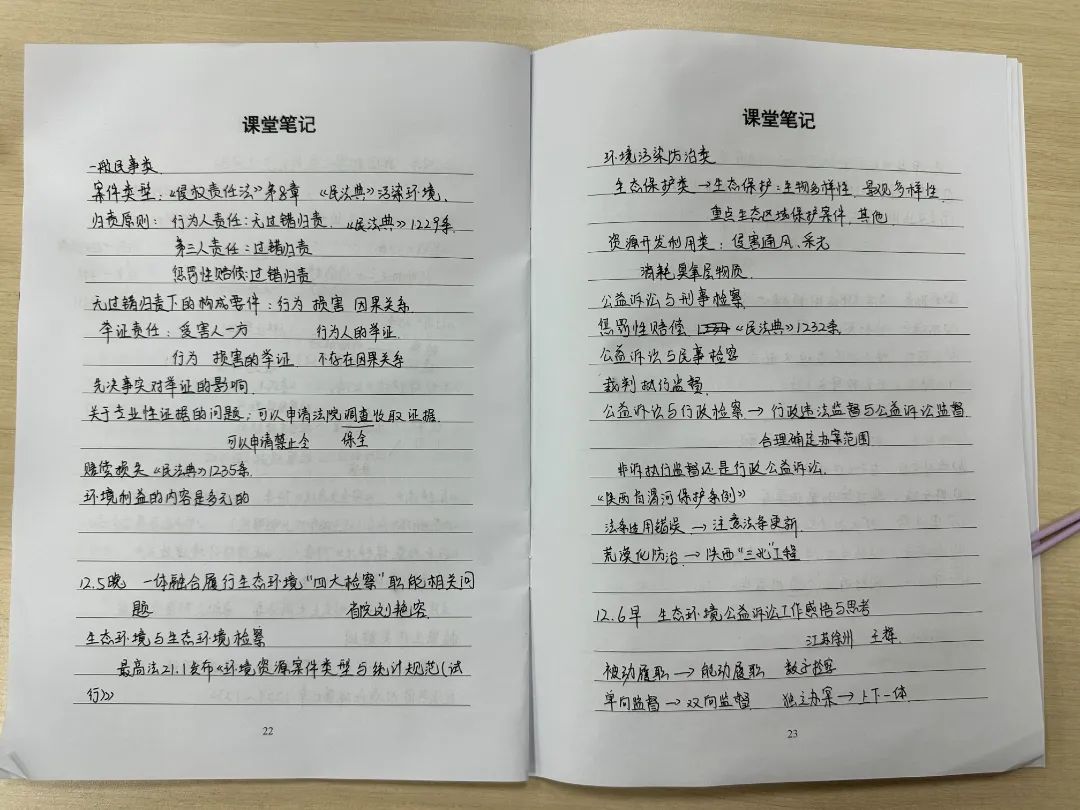 课堂笔记
一般民事类
案件类型：《侵权责任法》第8章 《民法典》污染环境、
归责原则：行为人责任：无过错归责.《民法典》1229条.
第三人责任：过错归责
惩罚性赔偿：过错归责
无过错归责下的构成要件：行为 损害 因果关系.
举证责任：受害人一方 行为人的举证.
行为 损害的举证. 不存在因果关系
先决事实对举证的影响.
关于专业性证据的问题：可以申请法院调查收取证据.
可以申请禁止令 保全
赔偿损失《民法典》1235条.
环境利益的内容是多元的
12.5晚 一体融合履行生态环境“四大检察”职能相关问
题 省院刘艳容
生态环境与生态环境检察
最高法21.1发布《环境资源案件类型与统计规范(试
行)》
22
课堂笔记
环境污染防治类
生态保护类→生态保护：生物多样性、景观多样性.
重点生态区域保护案件、其他
资源开发利用类：侵害通风、采光
消耗臭氧层物质.
公益诉讼与刑事检察.
惩罚性赔偿 《民法典》1232条.
公益诉讼与民事检察
裁判执行监督
公益诉讼与行政检察→行政违法监督与公益诉讼监督.
合理确定办案范围
非诉执行监督还是行政公益诉讼.
《陕西省渭河保护条例》
法条适用错误→注意法条更新.
荒漠化防治→陕西“三北”工程
12.6早 生态环境公益诉讼工作感悟与思考
江苏徐州 王辉.
被动履职→能动履职 数字检察
单向监督→双向监督 独立办案→上下一体.
23